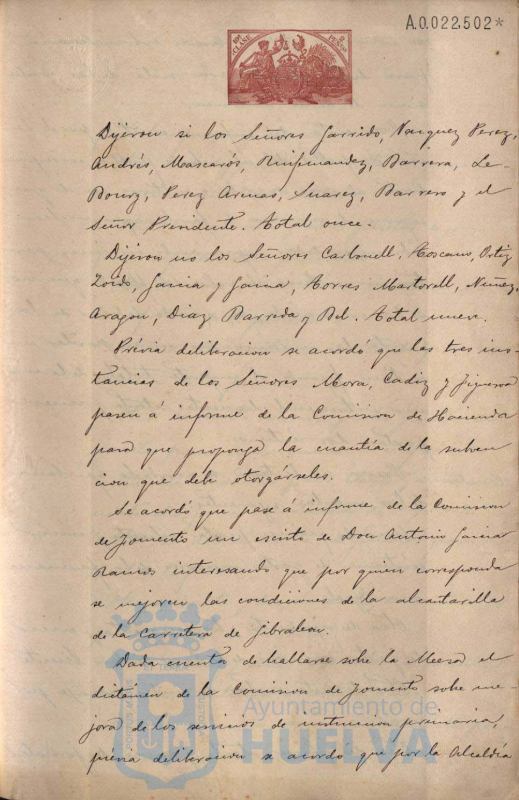 A.0.022.502*
10ª CLASE
2 PESETAS
Dijéron si los Señores Garrido, Vazquez Perez,
Andrés, Mascarós, Ruifernandez, Barrera, Le-
Bourg, Perez Arenas, Suarez, Barrero y el
Señor Presidente. Total once.
Dijéron no los Señores Carbonell, Toscano, Ortiz
Garcia y Garcia, Torres Martorell, Nuñez,
Aragon, Diaz Barreda y Bel. Total nueve.
Prévia deliberacion se acordó que las tres ins-
tancias de los Señores Mora, Cadiz y Figueroa
pasen á informe de la Comision de Hacienda
para que proponga la cuantía de la subven
cion que debe otorgárseles.
Se acordó que pase á informe de la Comision
de Fomento un escrito de Don Antonio Garcia
Ramos interesando que por quien corresponda
se mejoren las condiciones de la alcantarilla
de la Carretera de Gibraleon.
Dada cuenta de hallarse sobre la Mesa el
dictamen de la Comision de Fomento sobre me-
jora de los servicios de instruccion primaria,
previa deliberacion se acordó que por la Alcaldía
Ayuntamiento de
HUELVA